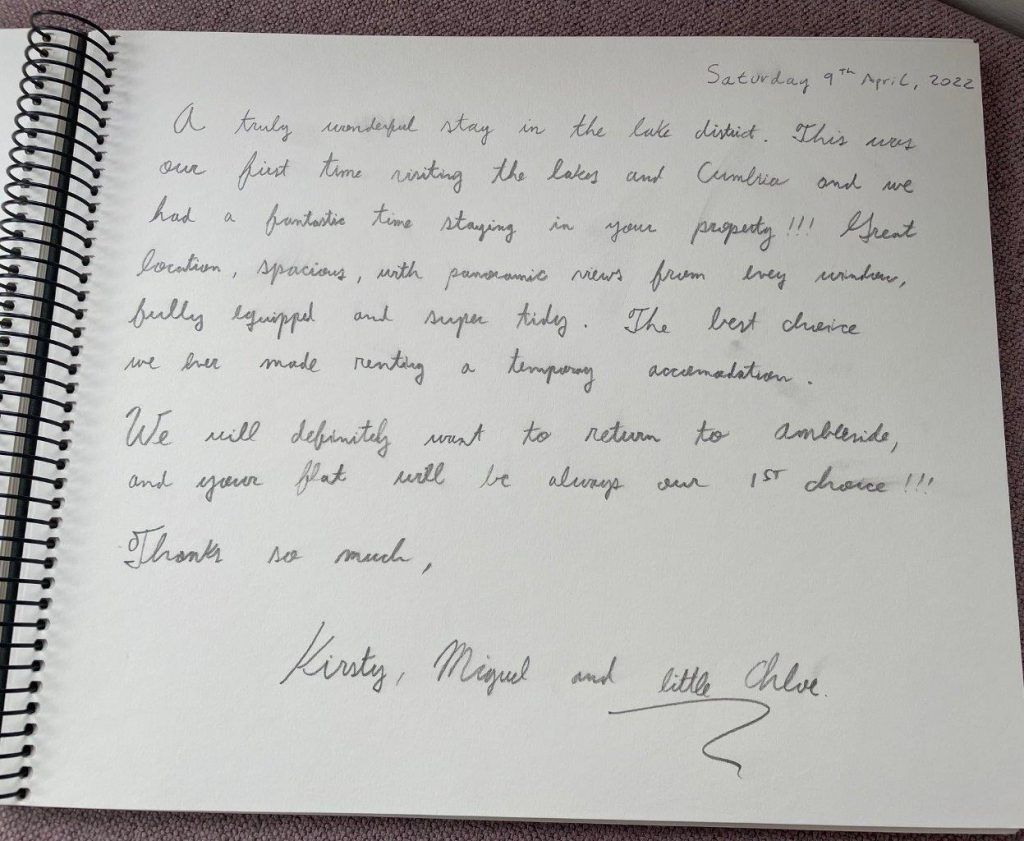 Saturday 9TH April, 2022
A truly wonderful stay in the lake district. This was
our first time visiting the lakes and Cumbria and we
had a fantastic time staying in your property!!! Great
location, spacious, with panoramic views from evey window,
fully equipped and super tidy. The best choice
we ever made renting a temporay accomadation.
We will definitely want to return to ambleside,
and your flat will be always our 1ST choice!!!
Thanks so much,
Kirsty, Miguel and little Chloe.